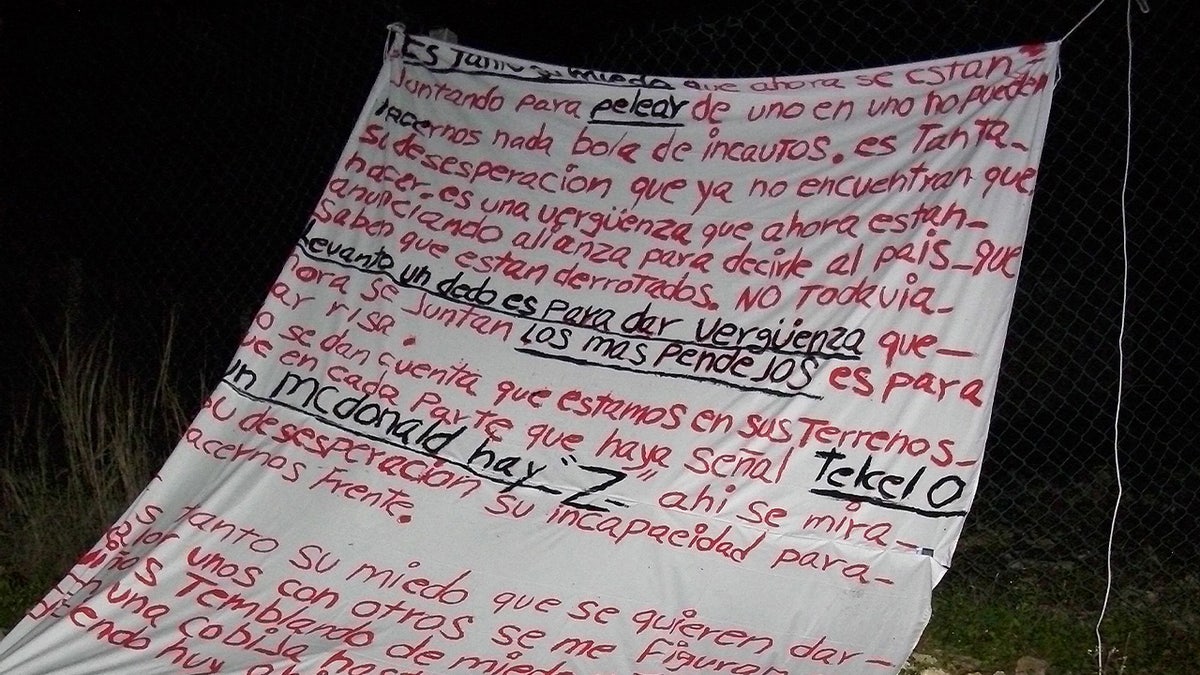 ES Tanto su miedo que ahora se estan
Juntando para pelear de uno en uno no pueden
hacernos nada bola de incautos. es Tanta-
su desesperacion que ya no encuentran que
hacer. es una vergüenza que ahora estan-
anunciando alianza para decirle al pais-que
saben que estan derrotados. NO Todavia-
Levanto un dedo es para dar vergüenza que-
hora se Juntan LOS mas PendeJOS es para
ar risa.
o se dan cuenta que estamos en sus Terrenos-
ue en cada Parte que haya señal Telcel O
un mcdonald hay "Z" ahi se mira-
su desesperacion su incapacidad para-
acernos Frente.
s tanto su miedo que se quieren dar-
alor unos con otros se me Figuran
Temblando de miedo
en una cobija
huy